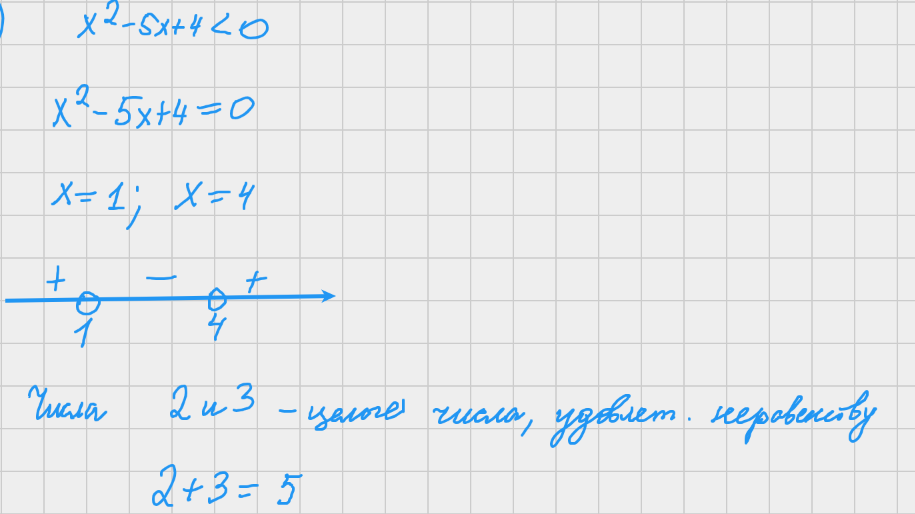 ) x² - 5x + 4 < 0
x² - 5x + 4 = 0
x = 1; x = 4
+ − +
1 4
Числа 2 и 3 - целые числа, удовлет. неравенству
2 + 3 = 5